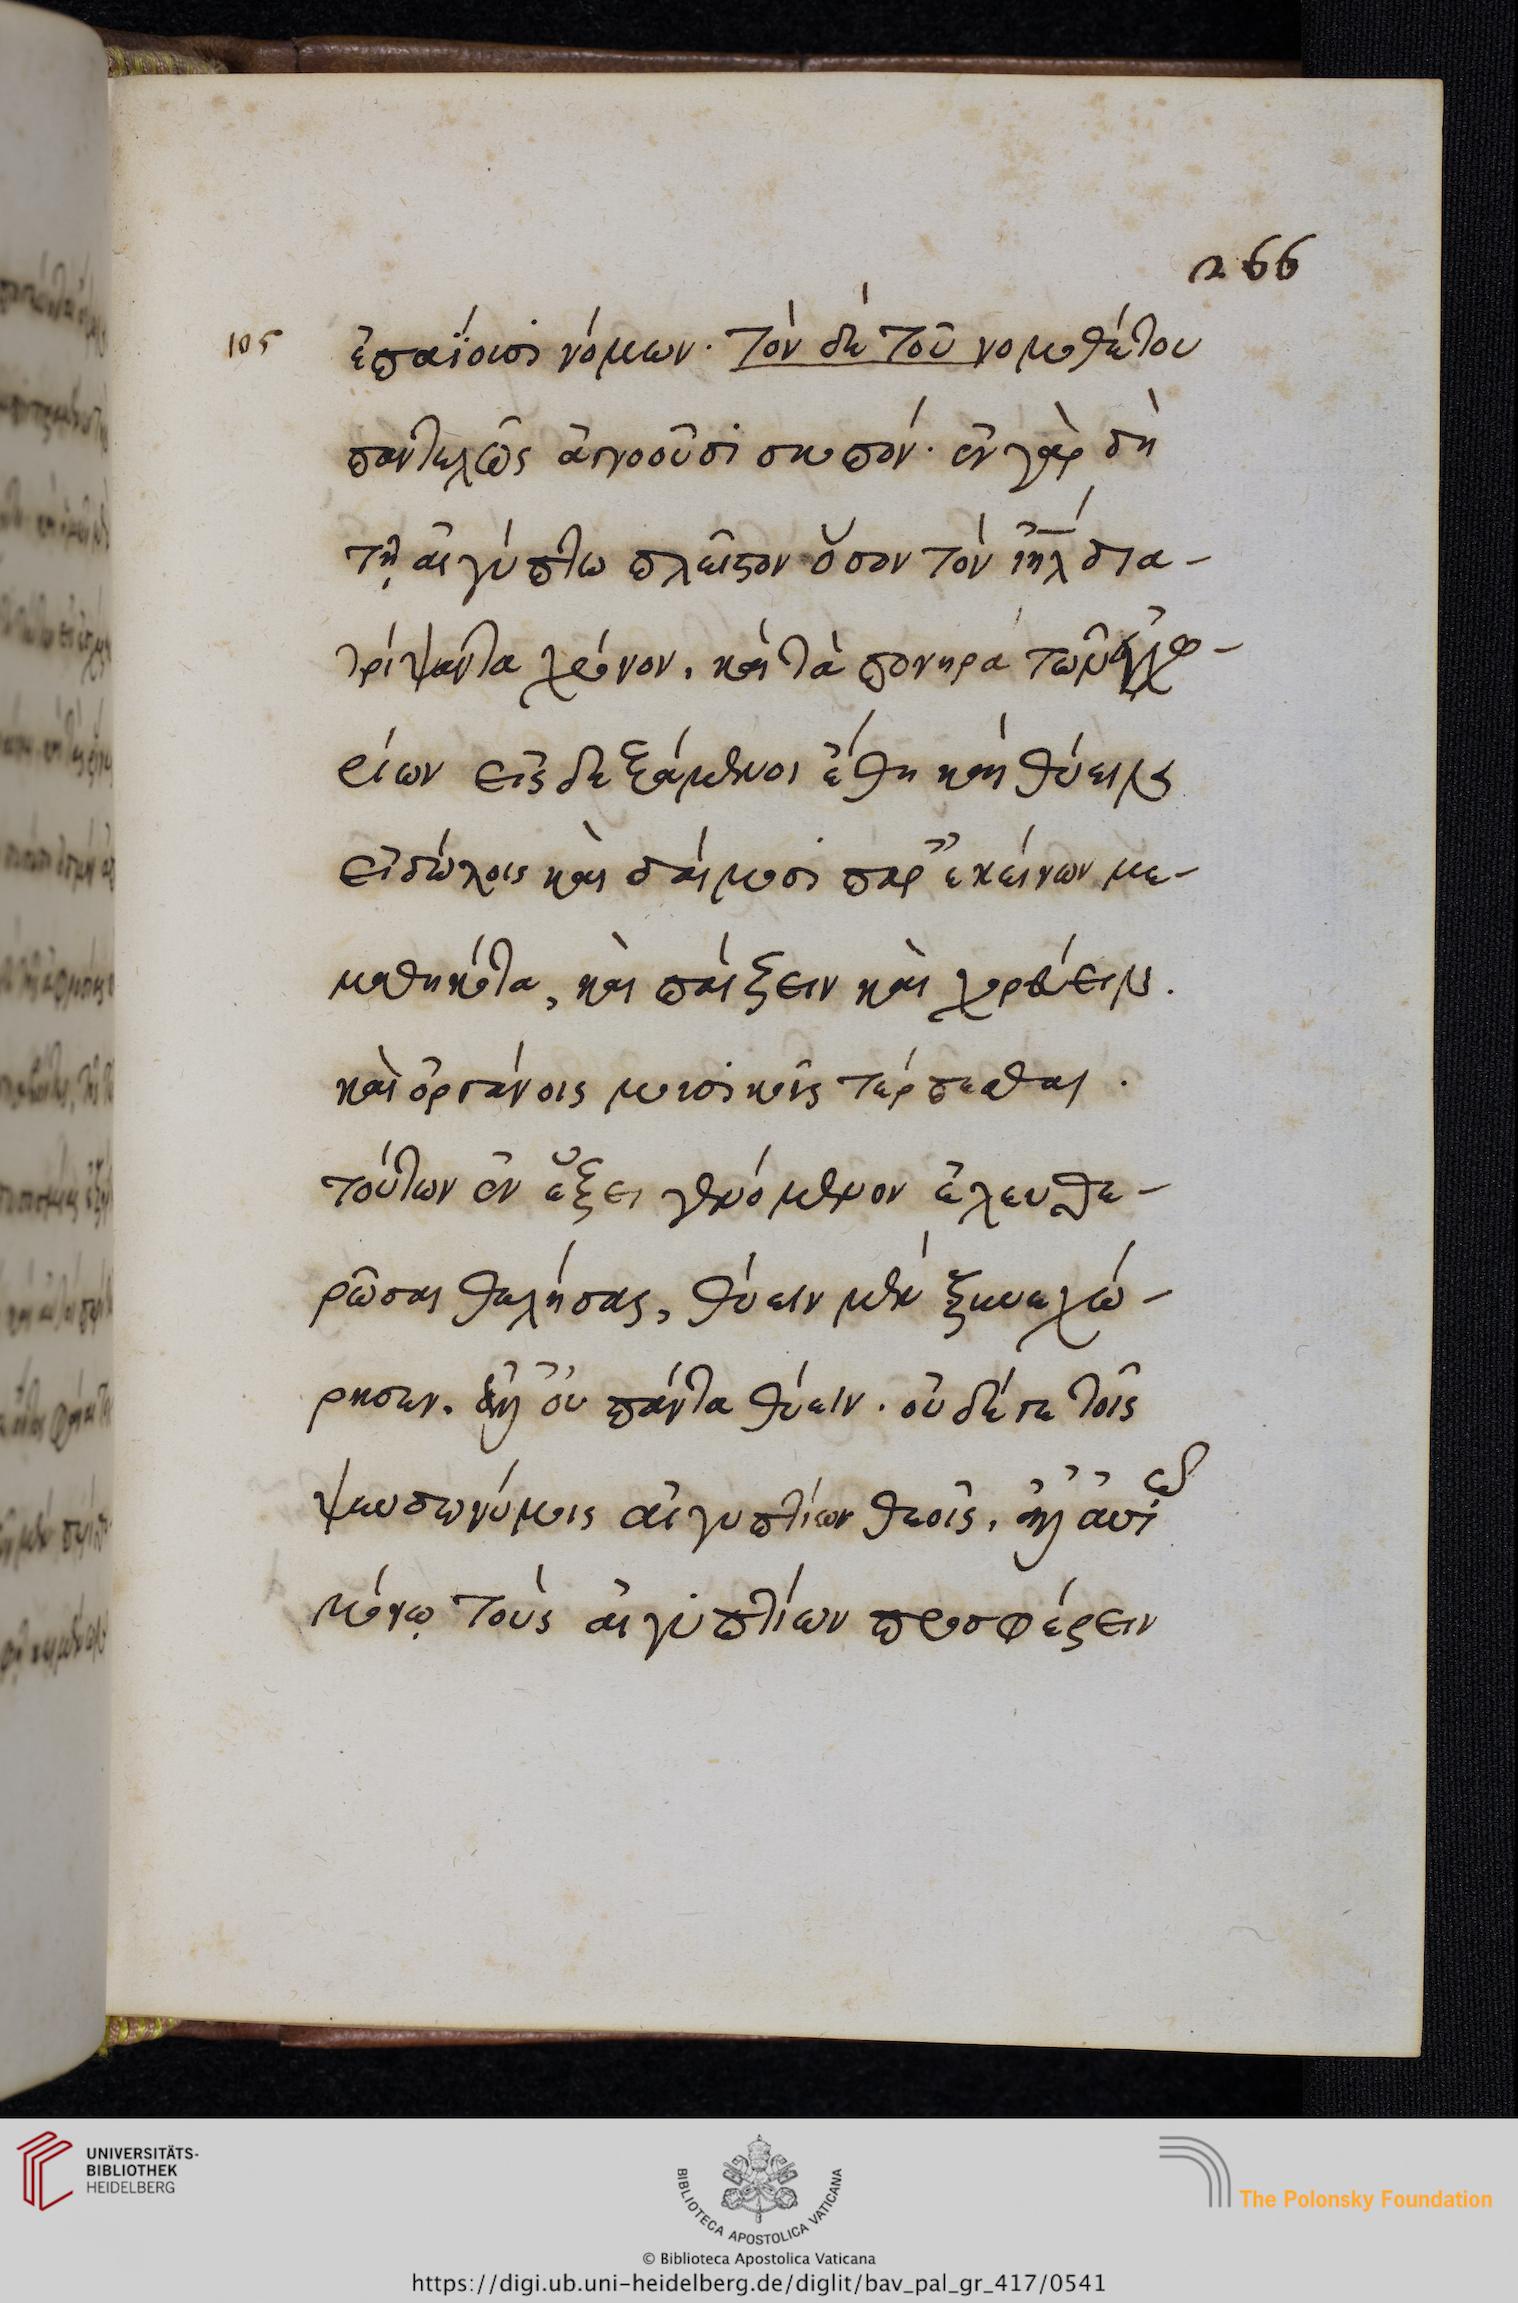 266
105 ἐπαΐουσι νόμων. τὸν δὲ τοῦ νομοθέτου
παντελῶς ἀγνοοῦσι σκοπόν. ἐν γὰρ δὴ
τῇ αἰγύπτω πλεῖστον ὅσον τὸν ἰηλ δια-
τρίψαντα χρόνον, καὶ τὰ πονηρὰ τῶν ἐγχω-
ρίων εἰσδεξάμενον ἔθη καὶ θύειν
εἰδώλοις καὶ δαίμοσι παρ' ἐκείνων με-
μαθηκότα, καὶ παίξειν καὶ χορεύειν.
καὶ ὀργάνοις μουσικοῖς τέρπεσθαι.
τούτων ἐν ἕξει γενόμενον ἐλευθε-
ρῶσαι θελήσας, θύειν μὲν ξυνεχώ-
ρησεν. ἀλλ' οὐ πάντα θύειν. οὐδέ γε τοῖς
ψευδωνύμοις αἰγυπτίων θεοῖς, ἀλλ' αὐτῶ
μόνῳ τοὺς αἰγυπτίων προσφέρειν
UNIVERSITÄTS-
BIBLIOTHEK
HEIDELBERG
BIBLIOTECA APOSTOLICA VATICANA
The Polonsky Foundation
© Biblioteca Apostolica Vaticana
https://digi.ub.uni-heidelberg.de/diglit/bav_pal_gr_417/0541